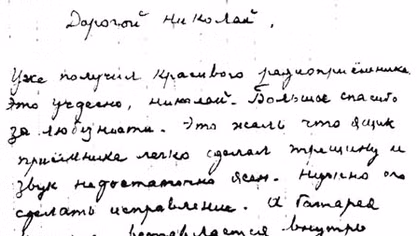 Дорогой Николай,
Уже получил красивого радиоприёмника.
Это чудесно, Николай. Большое спасибо
за любезности. Это жаль что ящик
приёмника легко сделал трещину и
звук недостаточно ясен. Нужно его
сделать исправление. А батарея
вставляется внутрь